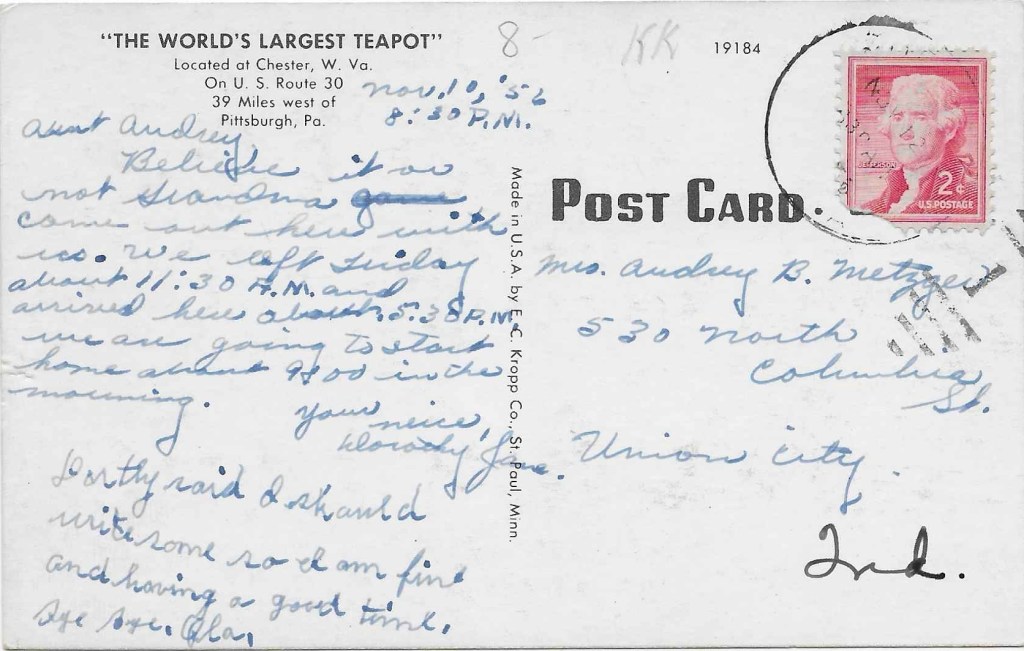 "THE WORLD'S LARGEST TEAPOT"
Located at Chester, W. Va.
On U. S. Route 30
39 Miles west of
Pittsburgh, Pa.
8-
KK
19184
Nov. 10, '56
8:30 P.M.
Aunt Audrey,
Believe it or
not Grandma
came out here with
us. We left Friday
about 11:30 A.M. and
arrived here about 5:38 P.M.
we are going to start
home about 9:00 in the
morning.
Your neice,
Dorothy Jane.
Dorthy said I should
write some so I am fine
and having a good time.
Bye Bye. Ola.
Made in U.S.A. by E. C. Kropp Co., St. Paul, Minn.
POST CARD.
JEFFERSON
2¢
U.S. POSTAGE
Mrs. Audrey B. Metzger
530 North
Columbia
St.
Union City.
Ind.